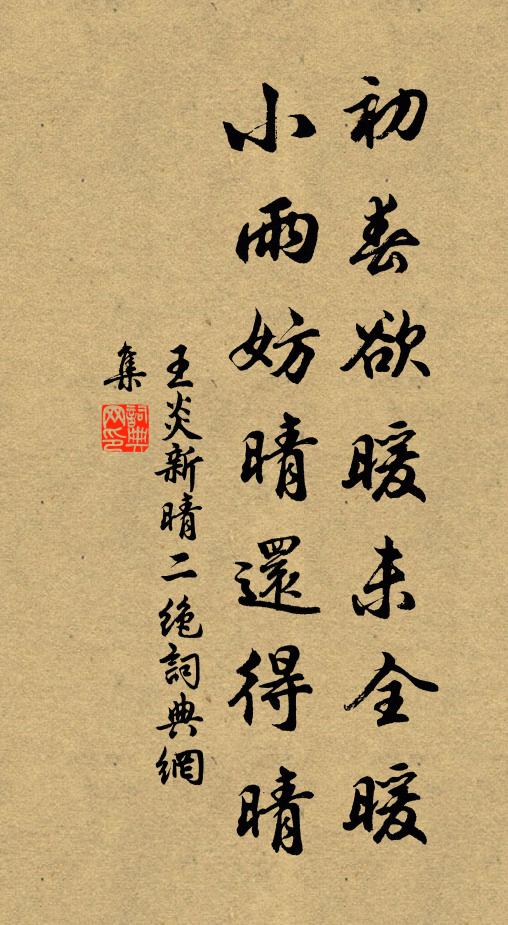 初春欲暖未全暖
小雨妨晴還得晴
王炎新晴二絶詞典網
集
詞典網印